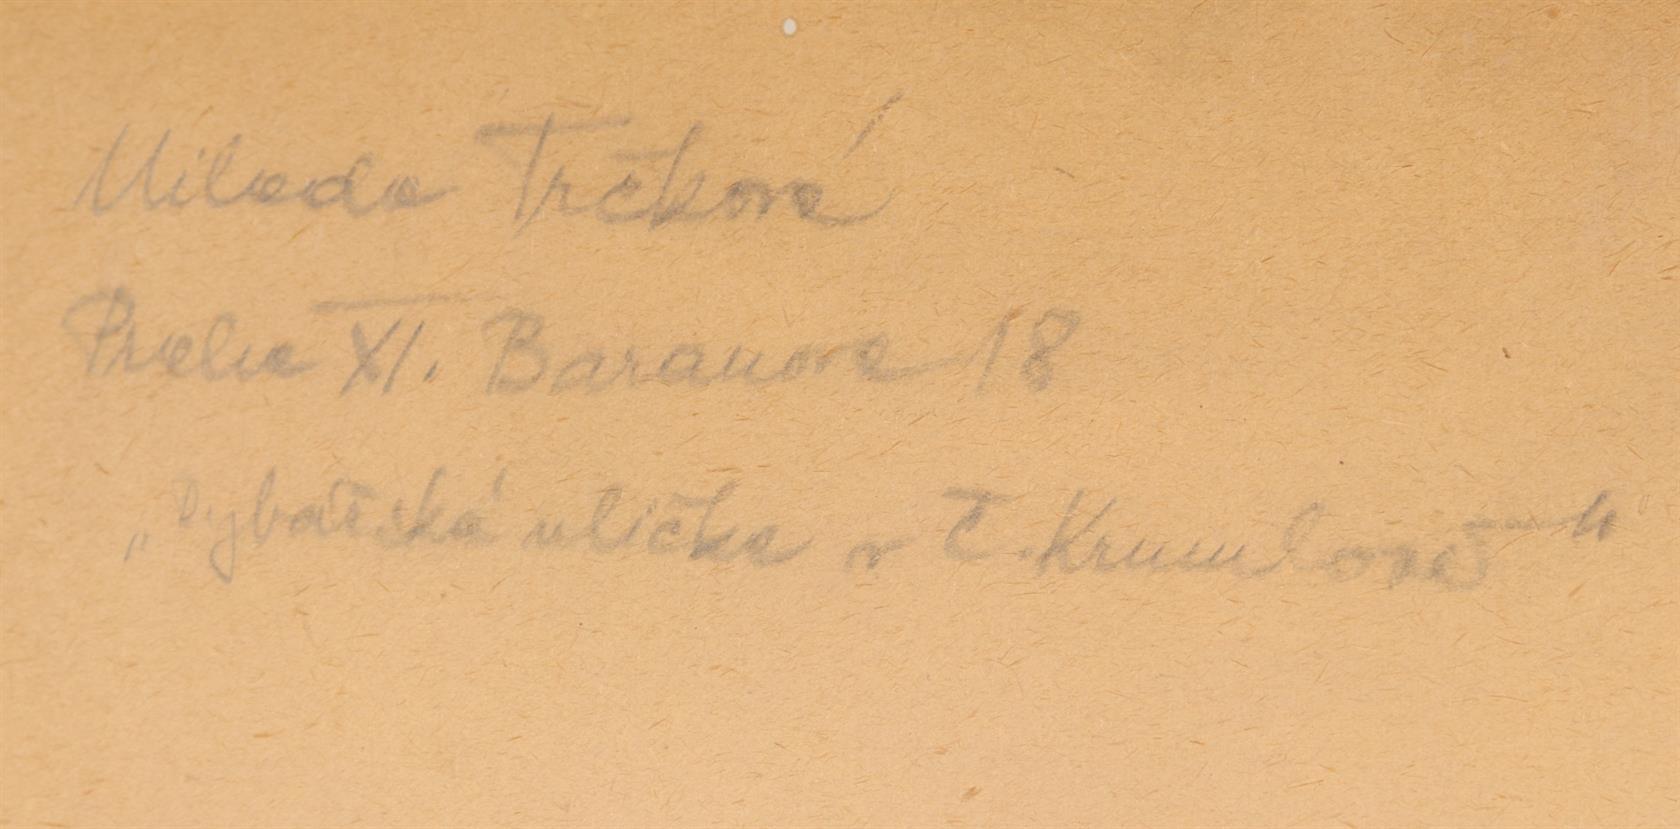 Milada Trčková
Praha XI. Baranova 18
„Rybářská ulička v Č. Krumlově"